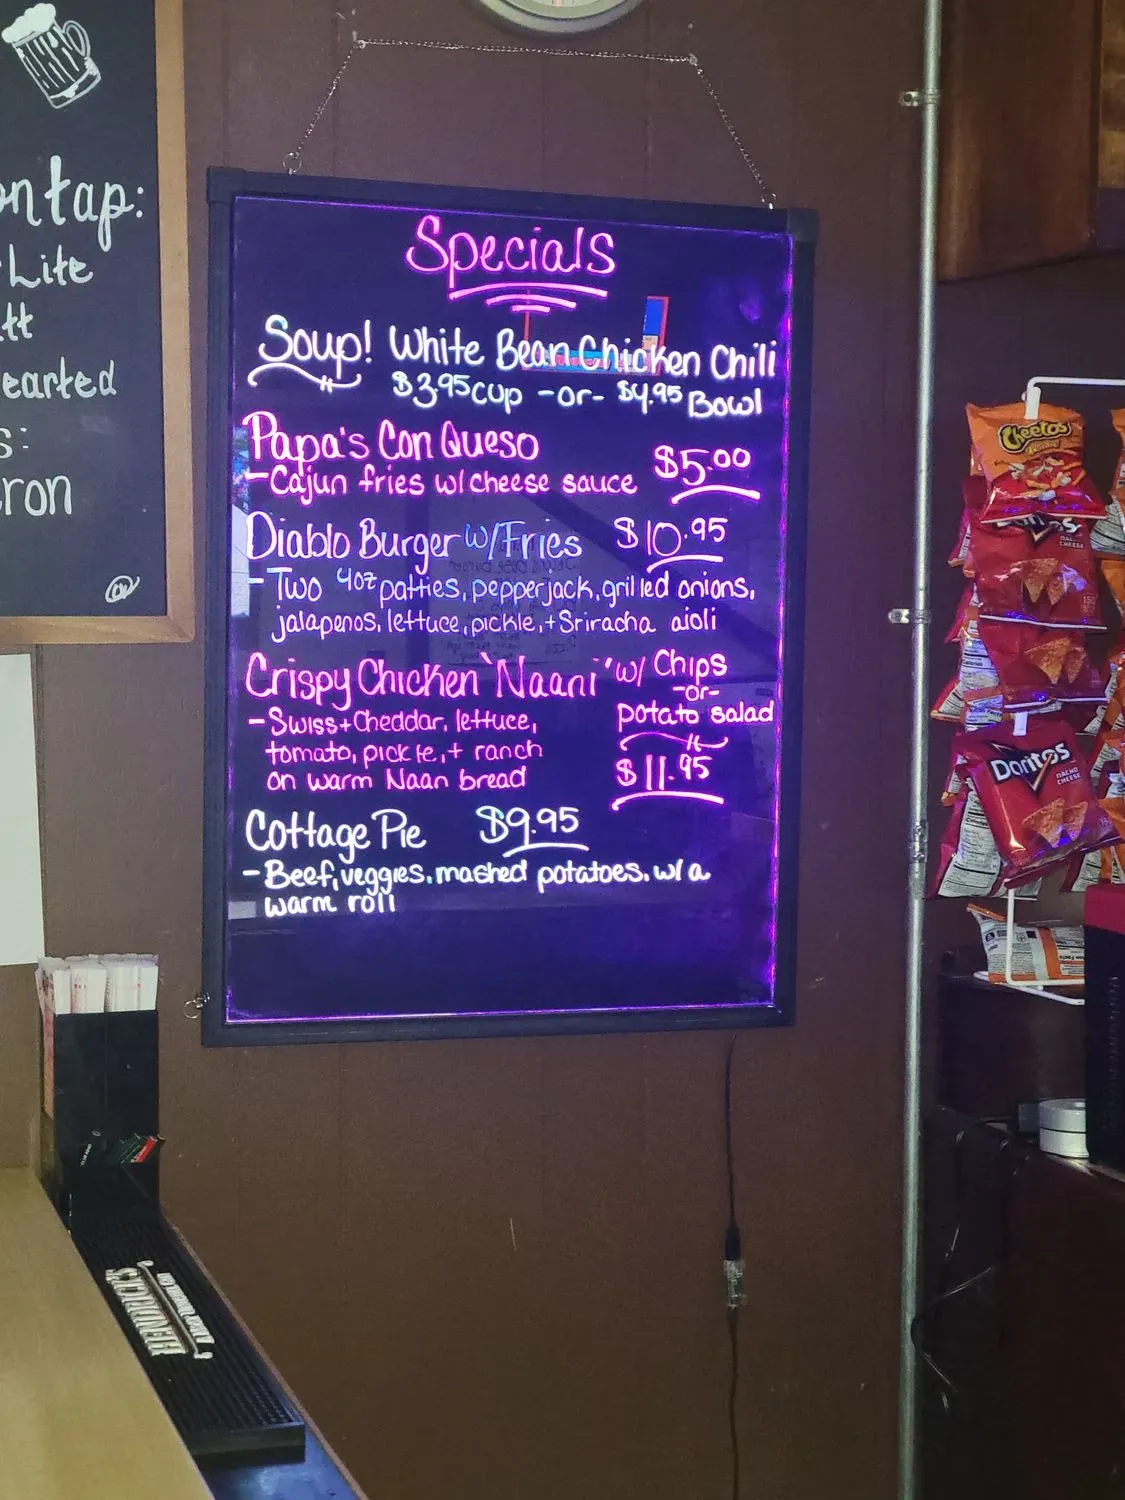 ontap:
Lite
tt
earted
s:
ron
Specials
Soup! White Bean Chicken Chili
$3.95 cup -or- $4.95 Bowl
Papa's Con Queso $5.00
-Cajun fries w/ cheese sauce
Diablo Burger w/Fries $10.95
-Two 4oz patties, pepperjack, grilled onions,
jalapenos, lettuce, pickle, + Sriracha aioli
Crispy Chicken 'Naani' w/ Chips
-or-
potato salad
-Swiss + Cheddar, lettuce,
tomato, pickle, + ranch
on warm Naan bread
$11.95
Cottage Pie $9.95
-Beef, veggies, mashed potatoes. w/ a
warm roll
Cheetos
Doritos
NACHO
CHEESE
Doritos
NACHO
CHEESE
HENDRICK'S